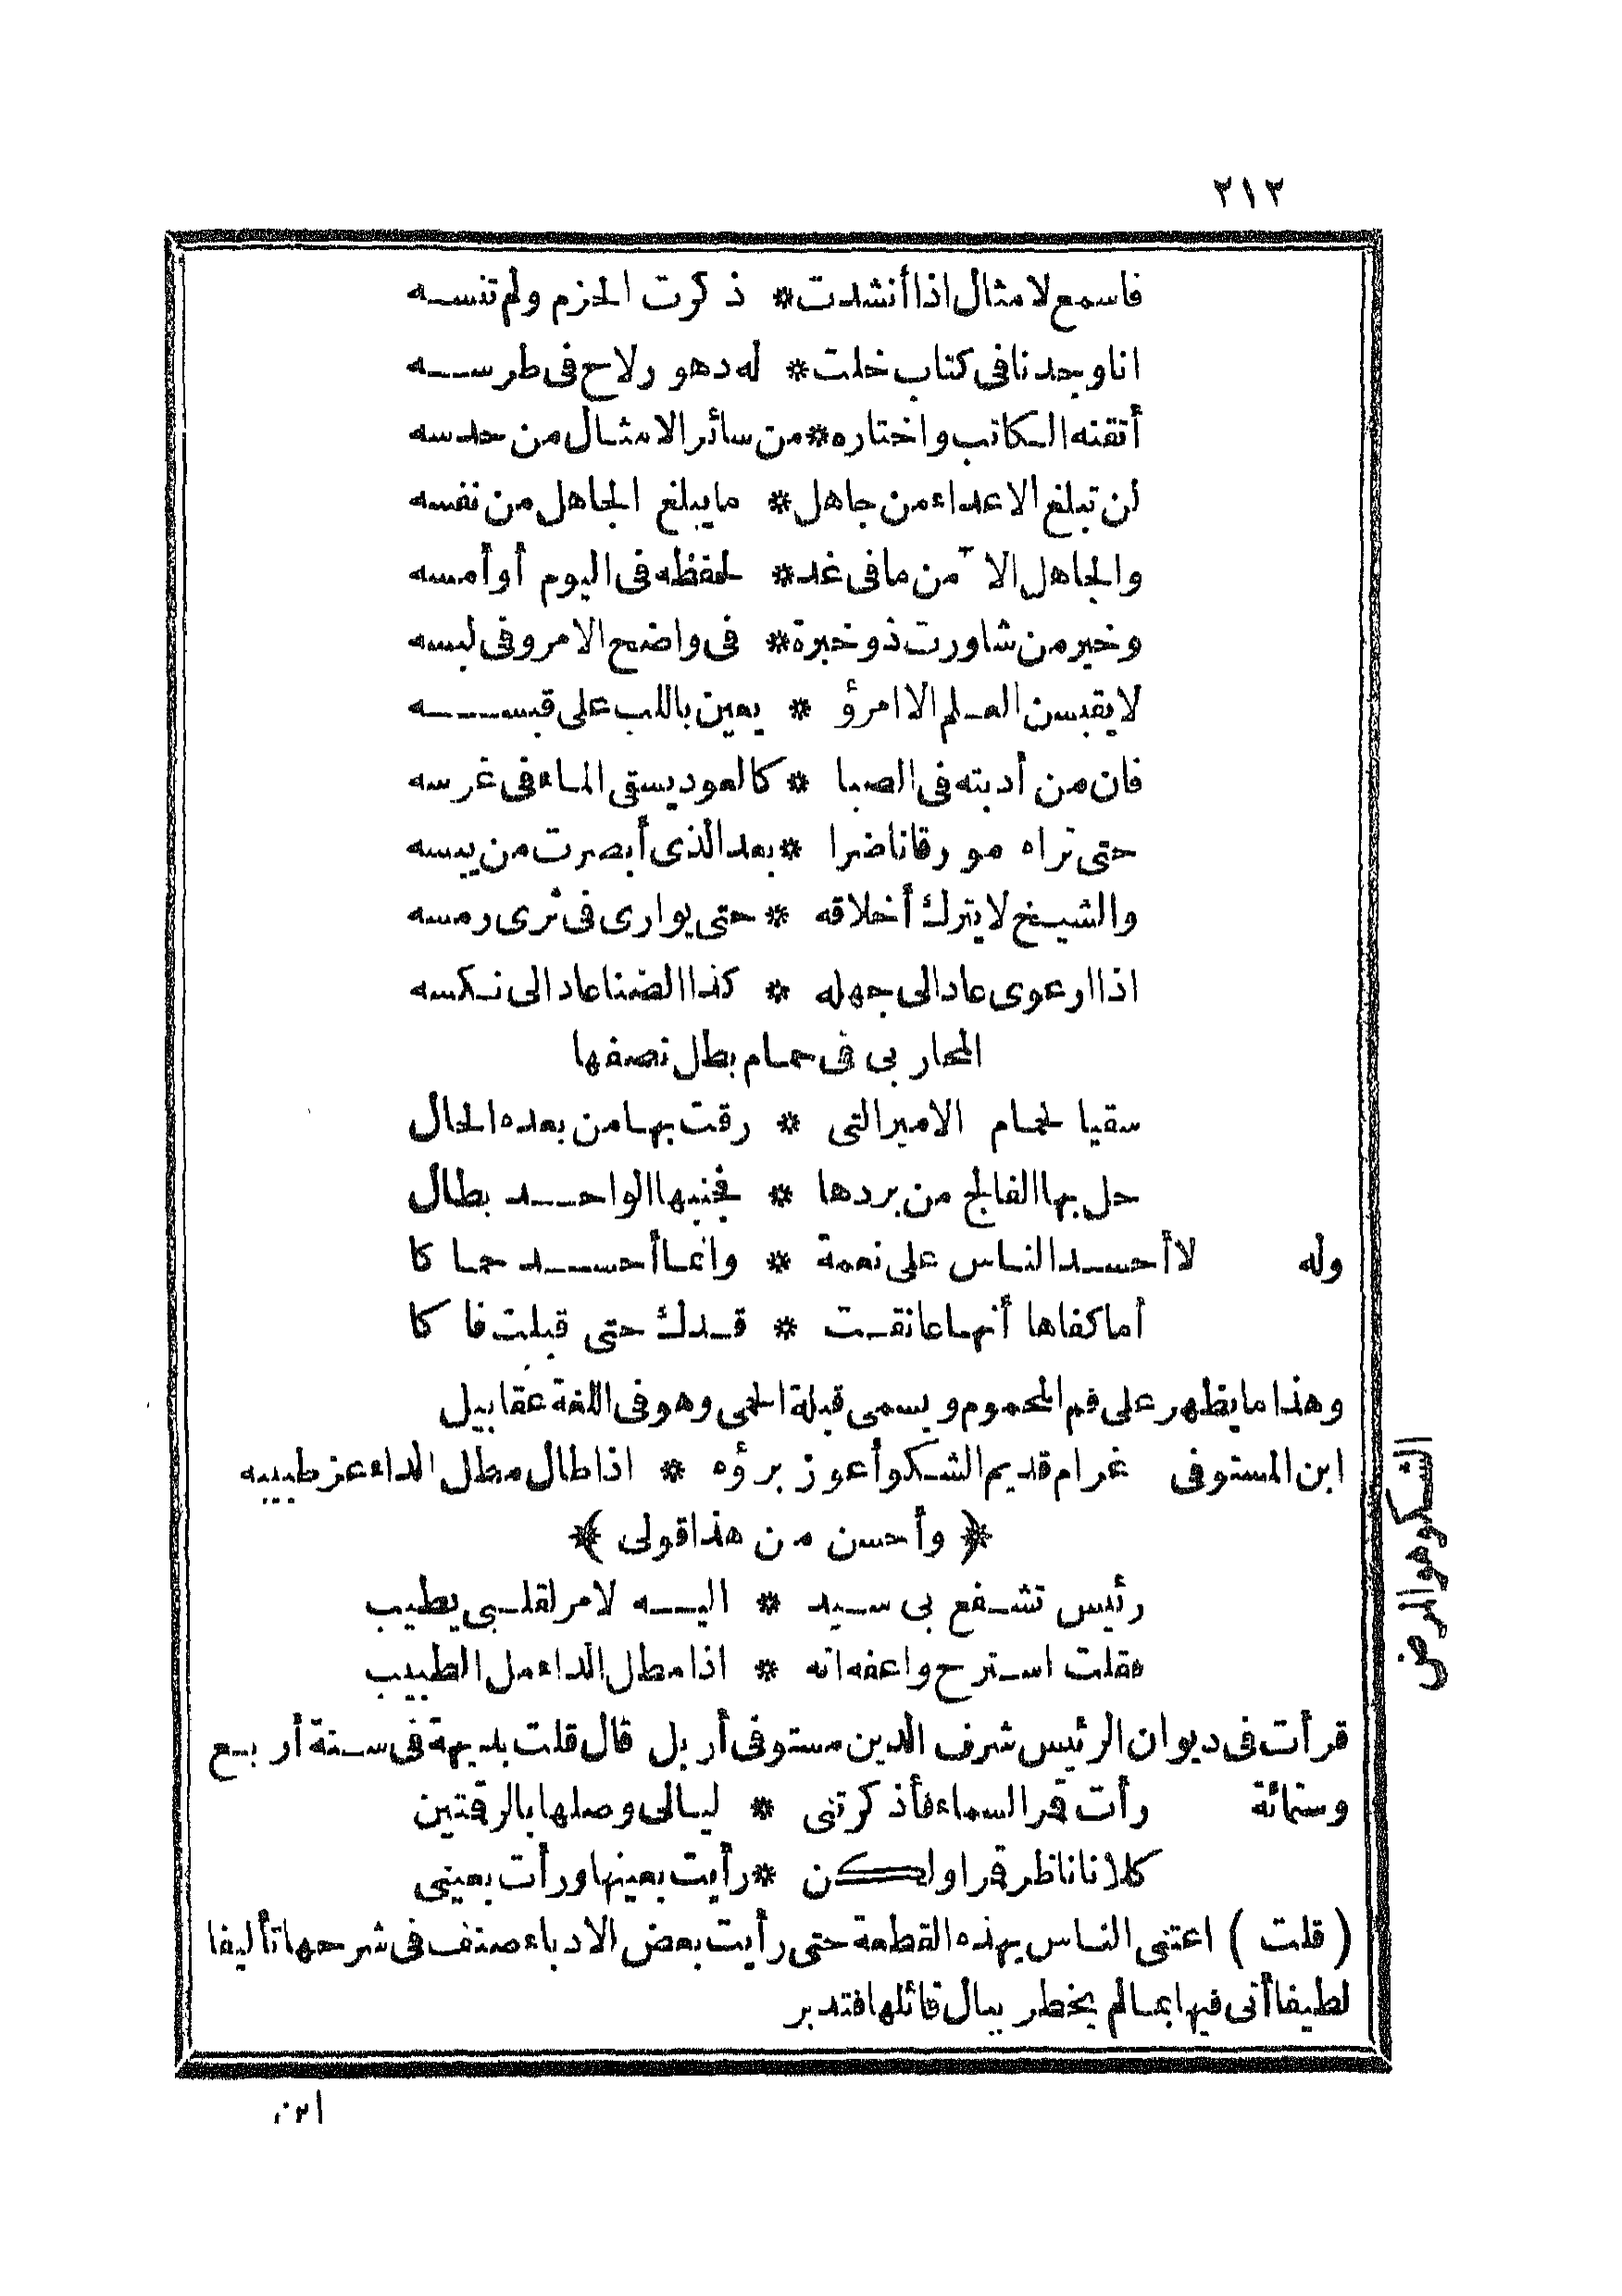 ٢١٢
فاسمع لامثال اذا أنشدت * ذكرت الحزم ولم تنسه
انا وجدنا فى كتاب خلت * له دهور لاح فى طرسه
أتقنه الكاتب واختاره * من سائر الامثال من حدسه
لن تبلغ الاعداء من جاهل * ما يبلغ الجاهل من نفسه
والجاهل الآمن ما فى غد * لحفظه فى اليوم أو أمسه
وخير من شاورت ذو خبرة * فى واضح الامر وفى لبسه
لا يقبسن العلم الا امرؤ * يعين باللب على قبسه
فان من أدبته فى الصبا * كالعود يسقى الماء فى غرسه
حتى تراه مورقا ناضرا * بعد الذى أبصرت من يبسه
والشيخ لا يترك أخلاقه * حتى يوارى فى ثرى رمسه
اذا ارعوى عاد الى جهله * كذا الضنا عاد الى نكسه
المحاربى فى حمام بطل نصفها
سقيا لحمام الامير التى * رقت بها من بعده الحال
حل بها الفالج من بردها * فجنبها الواحد بطال
وله لا أحسد الناس على نعمة * وانما أحسد حماكا
أما كفاها أنها عانقت * قدك حتى قبلت فاكا
وهذا ما يظهر على فم المحموم ويسمى قبلة الحمى وهو فى اللغة عقابيل
ابن المستوفى غرام قديم الشكو أعوز برؤه * اذا طال مطل الداء عز طبيبه
﴿ وأحسن من هذا قولى ﴾
رئيس تشفع بى سيد * اليه لامر لقلبى يطيب
فقلت استرح واعفه انه * اذا مطل الداء مل الطبيب
الشكو هو المرض
قرأت فى ديوان الرئيس شرف الدين مستوفى أربل قال قلت بديهة فى سنة أربع
وستمائة رأت قمر السماء فأذكرتنى * ليالى وصلها بالرقتين
كلانا ناظر قمرا ولكن * رأيت بعينها ورأت بعينى
( قلت ) اعتنى الناس بهذه القطعة حتى رأيت بعض الادباء صنف فى شرحها تأليفا
لطيفا أتى فيها بما لم يخطر ببال قائلها فتدبر
ابن